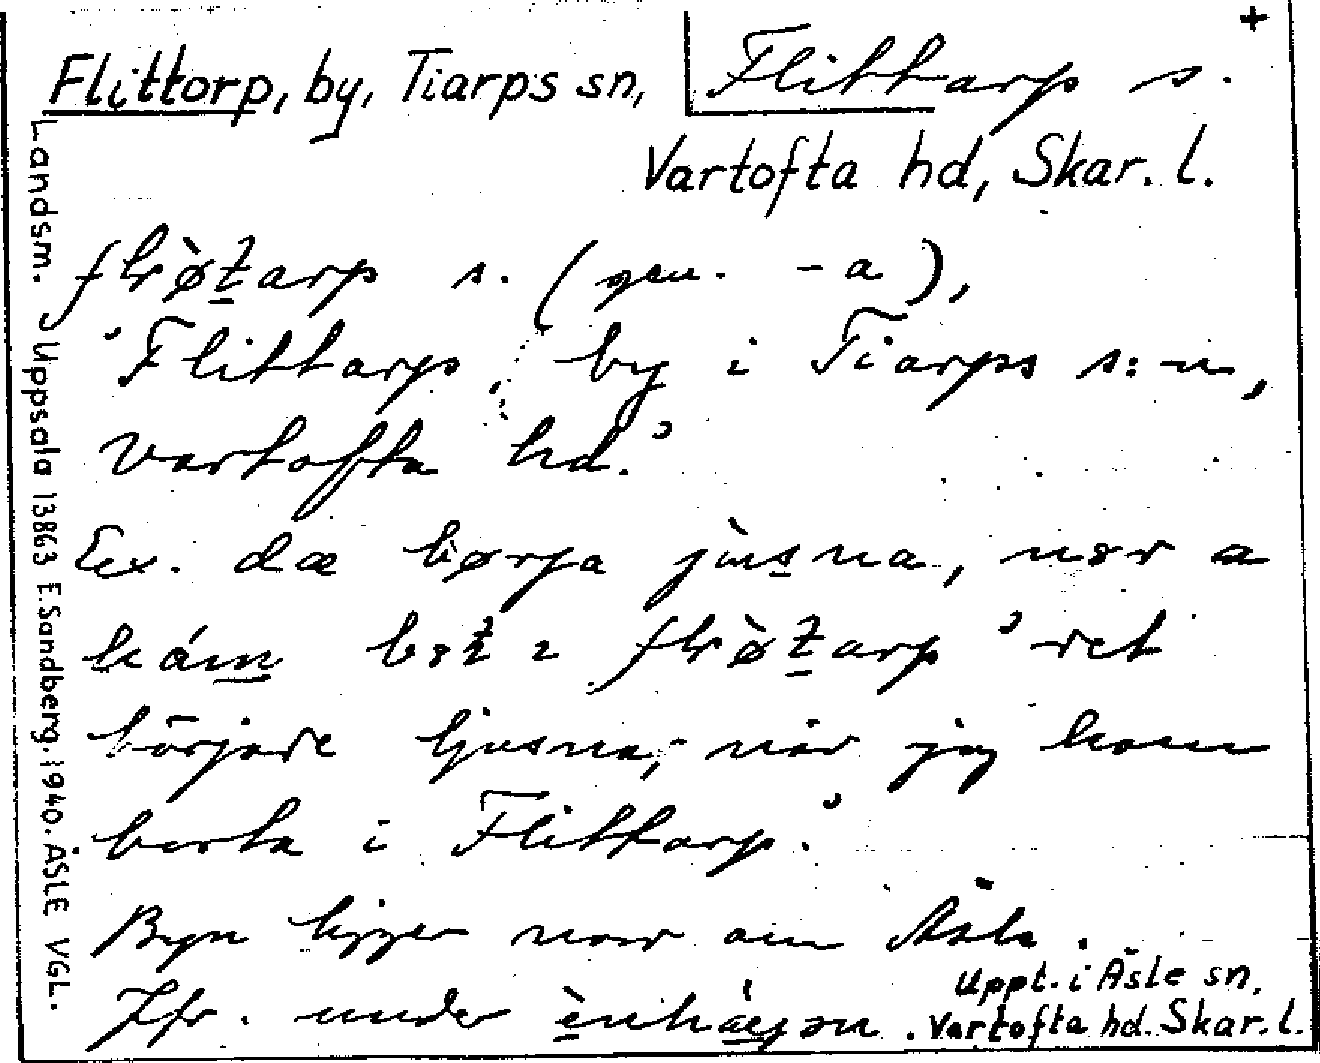 Flittorp, by, Tiarps sn, Flittarp s.
Vartofta hd, Skar. l.
s. (gen. -a),
'Flittarp, by i Tiarps s:n,
Vartofta hd.'
Ex. dæ børja jùsna, a
kám 'det
började ljusna, när jag kom
borta i Flittarp.'
Byn ligger norr om Åsle.
Jfr. under
Uppt. i Åsle sn,
Vartofta hd. Skar. l.
Landsm. Uppsala 13863 E. Sandberg. 1940. ÅSLE VGL.